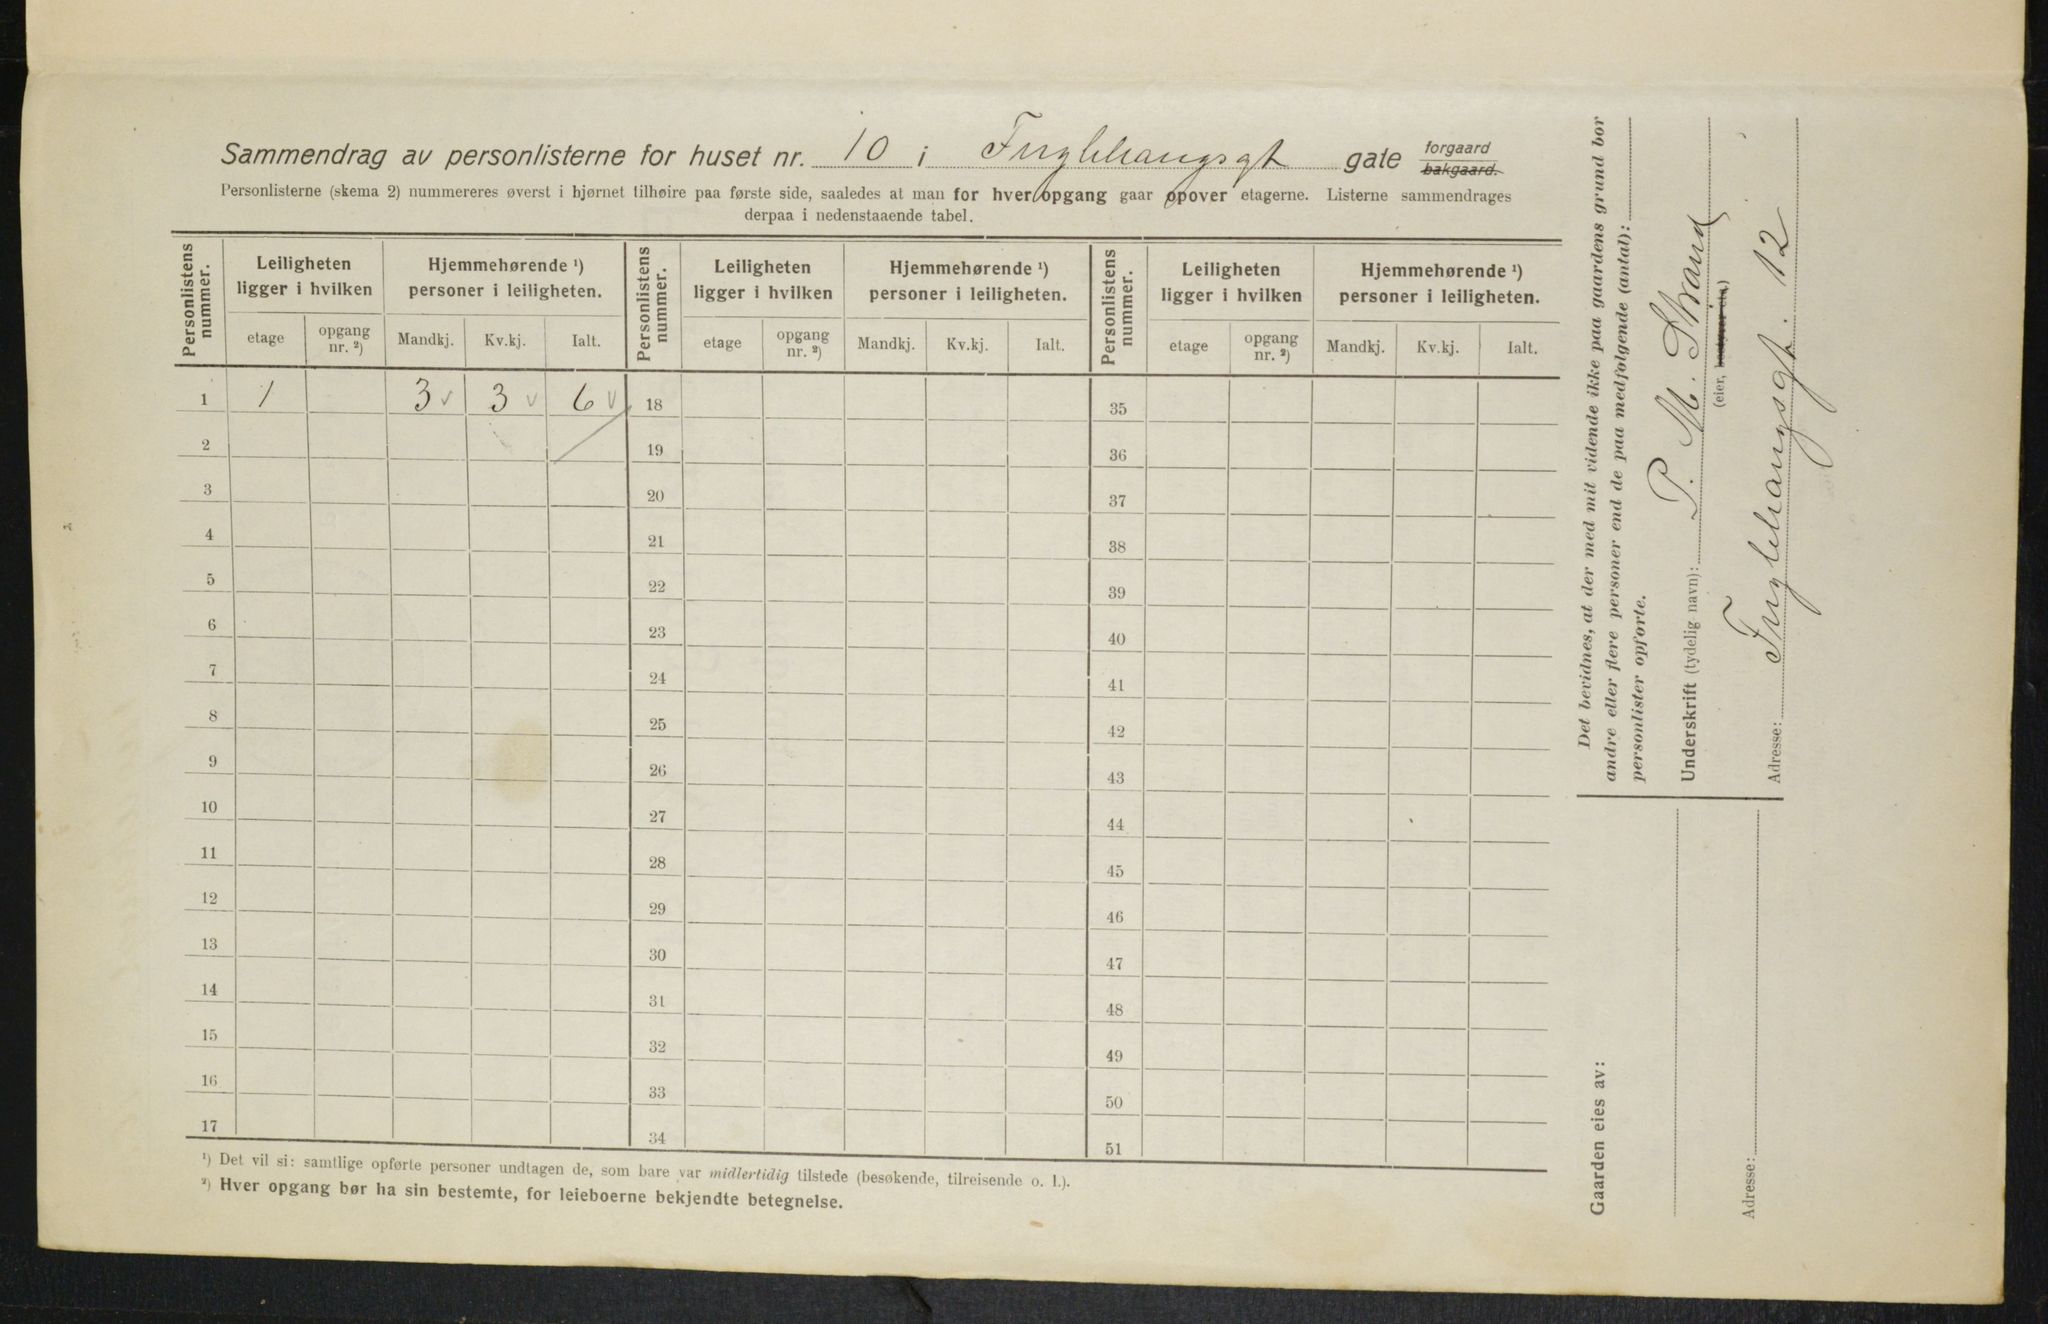 Sammendrag av personlisterne for huset nr. 10 i Fuglehaugsgt gate forgaard bakgaard.
Personlisterne (skema 2) nummereres øverst i hjørnet tilhøire paa første side, saaledes at man for hver opgang gaar opover etagerne. Listerne sammendrages
derpaa i nedenstaaende tabel.
Personlistens nummer. Leiligheten ligger i hvilken Hjemmehørende ¹) personer i leiligheten. Personlistens nummer. Leiligheten ligger i hvilken Hjemmehørende ¹) personer i leiligheten. Personlistens nummer. Leiligheten ligger i hvilken Hjemmehørende ¹) personer i leiligheten.
etage opgang nr. ²) Mandkj. Kv.kj. Ialt. etage opgang nr. ²) Mandkj. Kv.kj. Ialt. etage opgang nr. ²) Mandkj. Kv.kj. Ialt.
1 1 3 v 3 v 6 v 18 35
2 19 36
3 20 37
4 21 38
5 22 39
6 23 40
7 24 41
8 25 42
9 26 43
10 27 44
11 28 45
12 29 46
13 30 47
14 31 48
15 32 49
16 33 50
17 34 51
¹) Det vil si: samtlige opførte personer undtagen de, som bare var midlertidig tilstede (besøkende, tilreisende o. l.).
²) Hver opgang bør ha sin bestemte, for leieboerne bekjendte betegnelse.
Det bevidnes, at der med mit vidende ikke paa gaardens grund bor
andre eller flere personer end de paa medfølgende (antal):
personlister opførte.
Underskrift (tydelig navn): P. M. Strand
(eier, bestyrer etc.)
Adresse: Fuglehaugsgt. 12
Gaarden eies av:
Adresse: